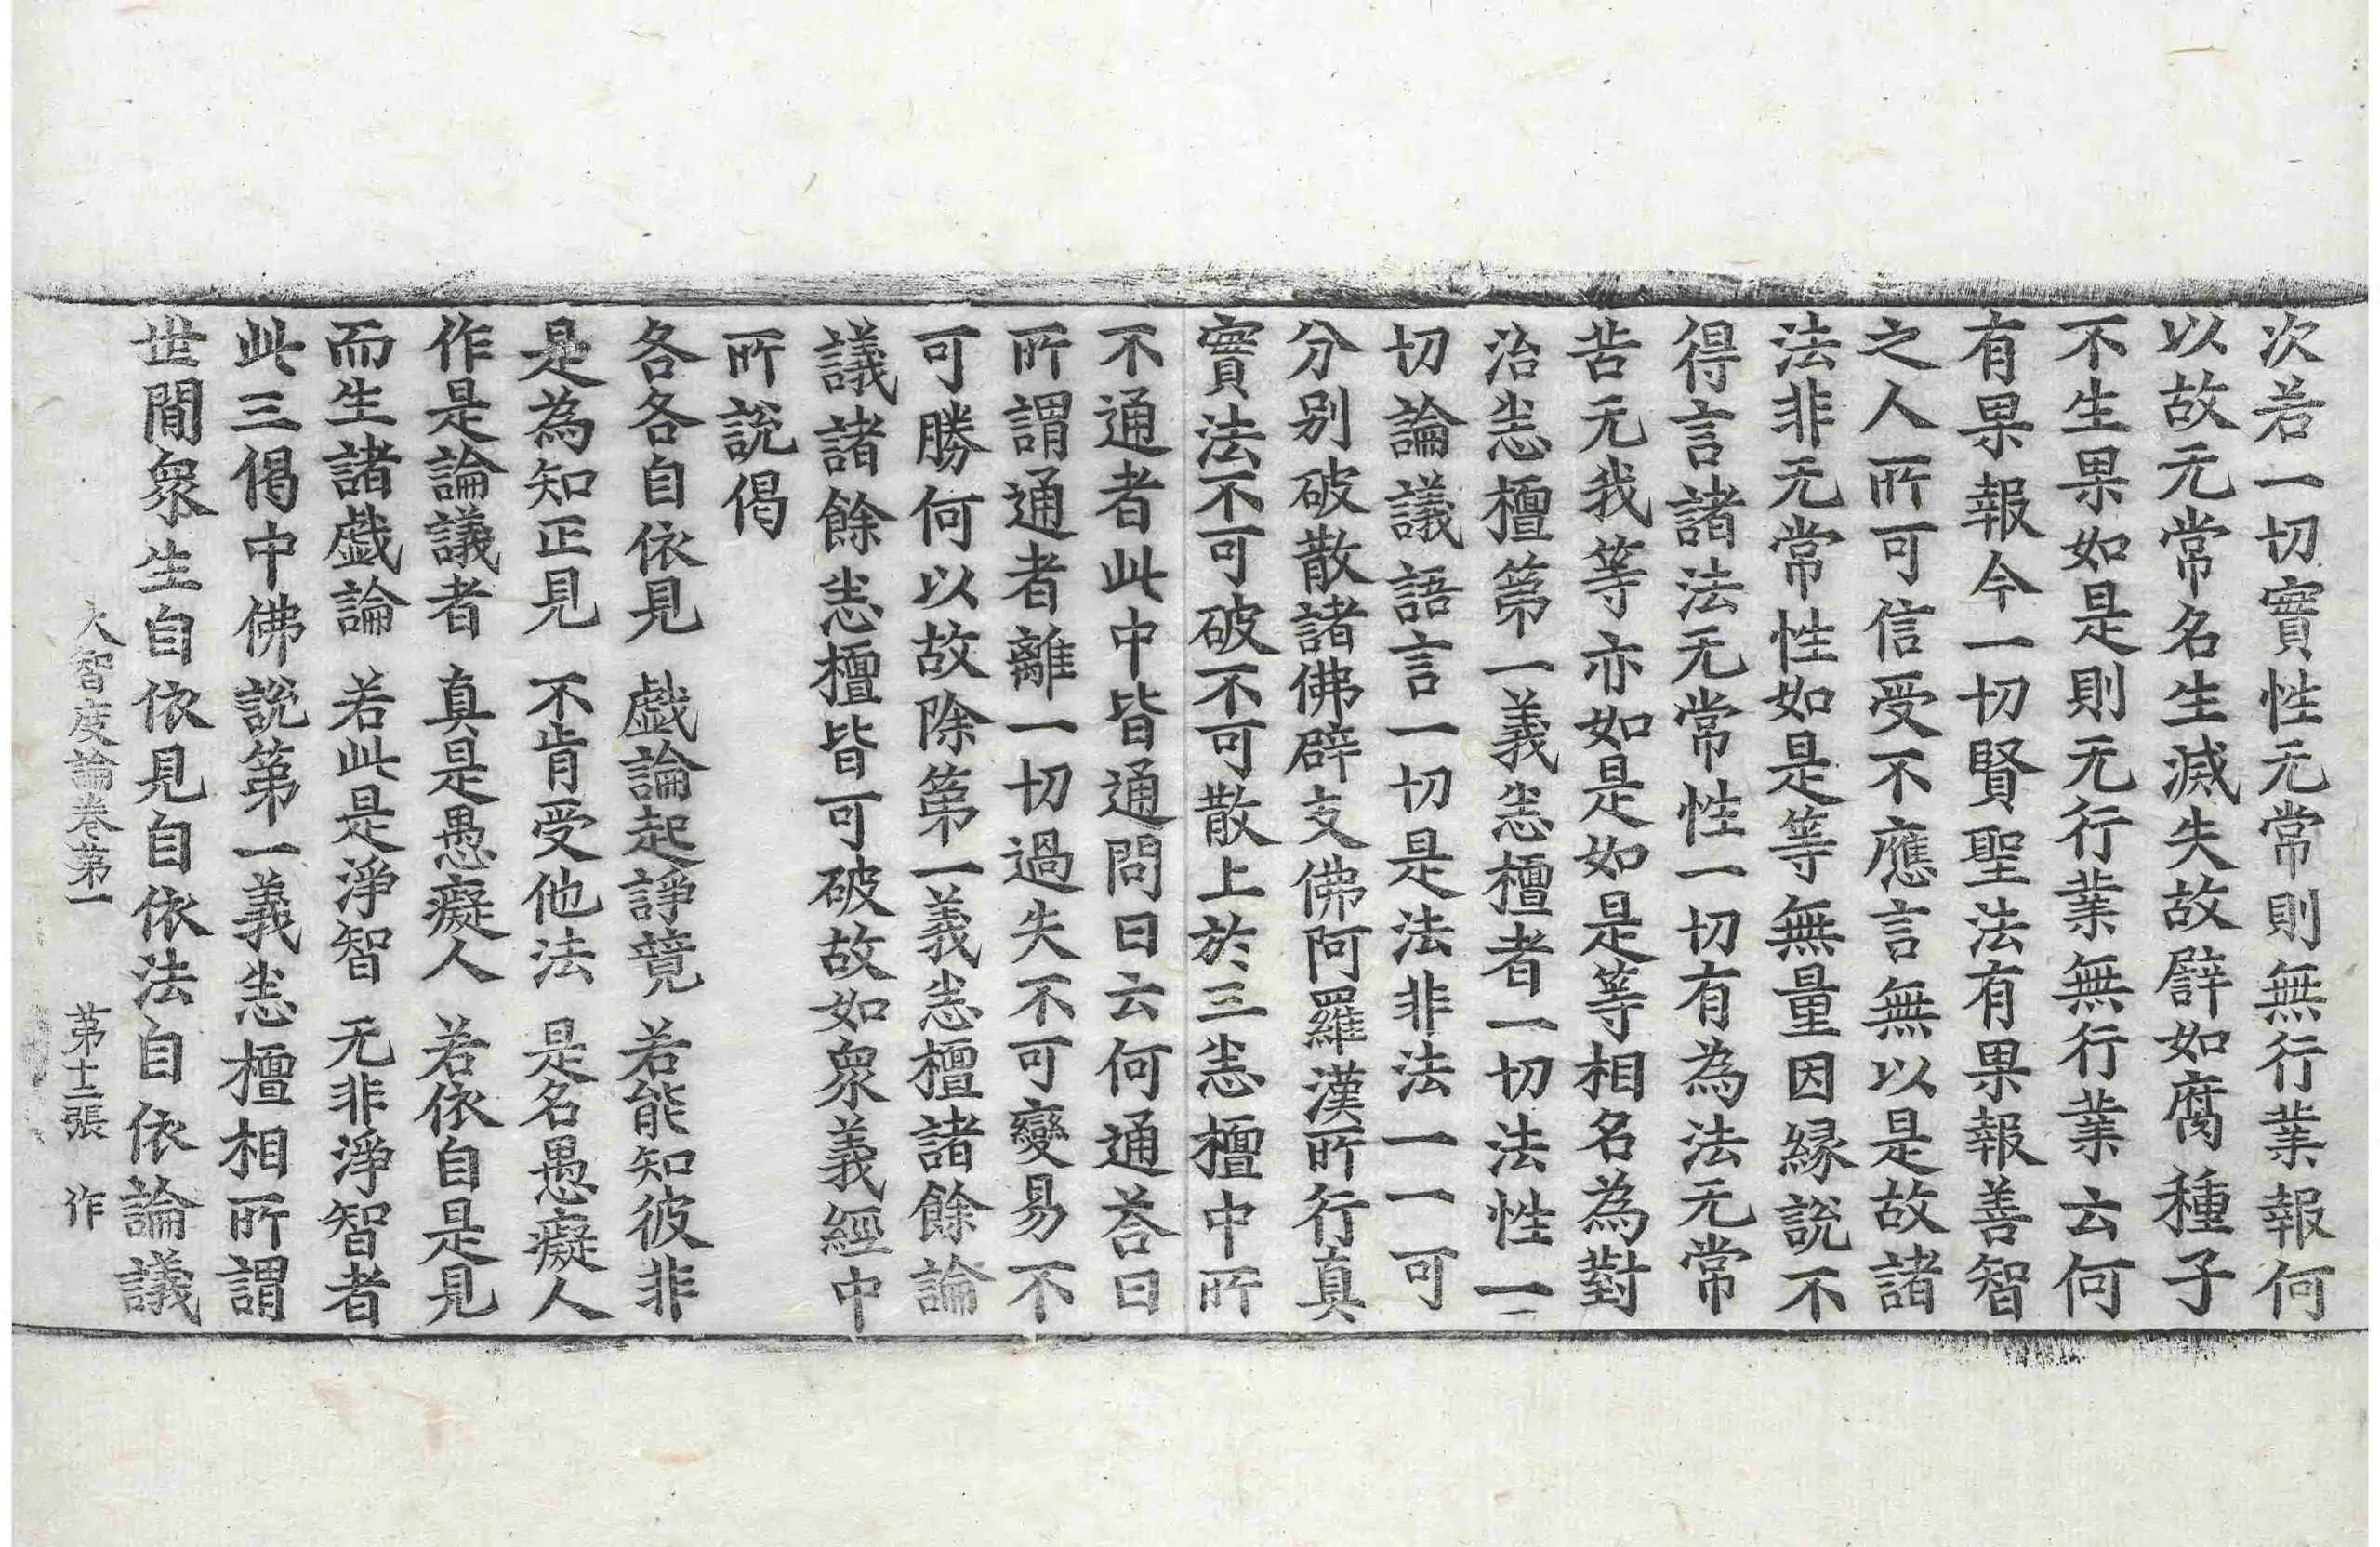 次若一切實性无常則無行業報何
以故无常名生滅失故譬如腐種子
不生果如是則无行業無行業云何
有果報今一切賢聖法有果報善智
之人所可信受不應言無以是故諸
法非无常性如是等無量因縁說不
得言諸法无常性一切有為法无常
苦无我等亦如是如是等相名為對
治悉檀第一義悉檀者一切法性一
切論議語言一切是法非法一一可
分别破散諸佛辟支佛阿羅漢所行真
實法不可破不可散上於三悉檀中所
不通者此中皆通問曰云何通荅曰
所謂通者離一切過失不可變易不
可勝何以故除第一義悉檀諸餘論
議諸餘悉檀皆可破故如衆義經中
所說偈
各各自依見　戲論起諍競　若能知彼非
是為知正見　不肯受他法　是名愚癡人
作是論議者　真是愚癡人　若依自是見
而生諸戲論　若此是淨智　无非淨智者
此三偈中佛說第一義悉檀相所謂
世間衆生自依見自依法自依論議
大智度論卷第一　第十二張　作